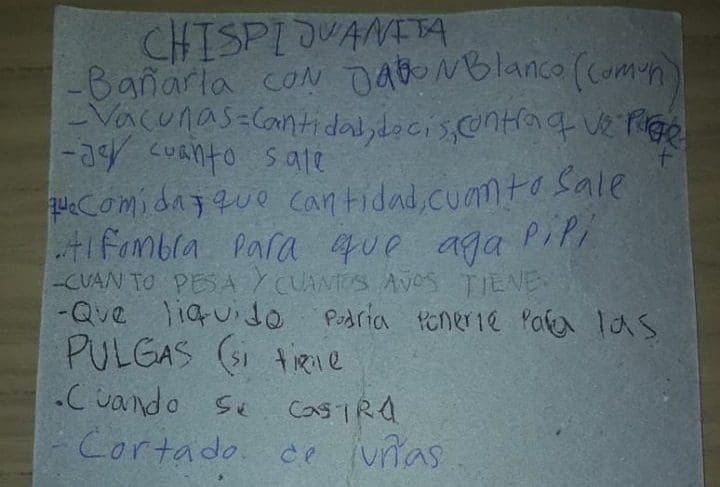 CHISPIJUANITA
- Bañarla con JABON Blanco (comun)
- Vacunas = Cantidad, docis, contra q ve
- cuanto sale
que comida, que cantidad, cuanto sale
. Alfombra para que aga pipi
- CUANTO PESA Y CUANTOS AÑOS TIENE.
- Que liquido podria ponerle para las
PULGAS (si tiene
. Cuando se CASTRA
- Cortado de uñas